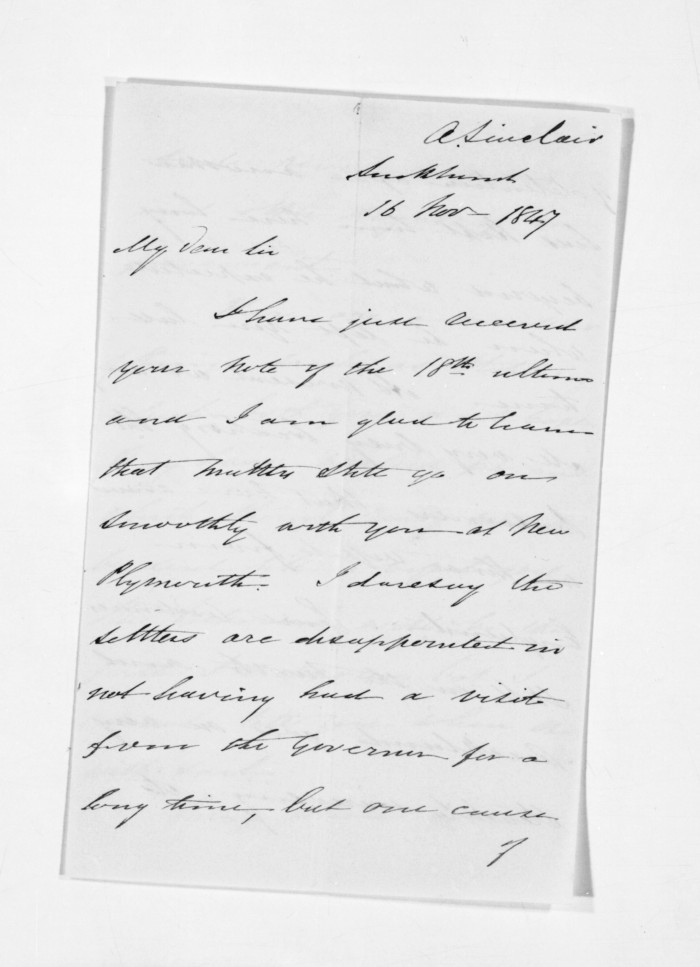 A. Sinclair
Auckland
16 Nov– 1847
My dear Sir
I have just received
your note of the 18th. ultimo
and I am glad to learn
that matters still go on
smoothly with you at New
Plymouth. I daresay the
settlers are disappointed in
not having had a visit
from the Governor for a
long time, but one cause
of